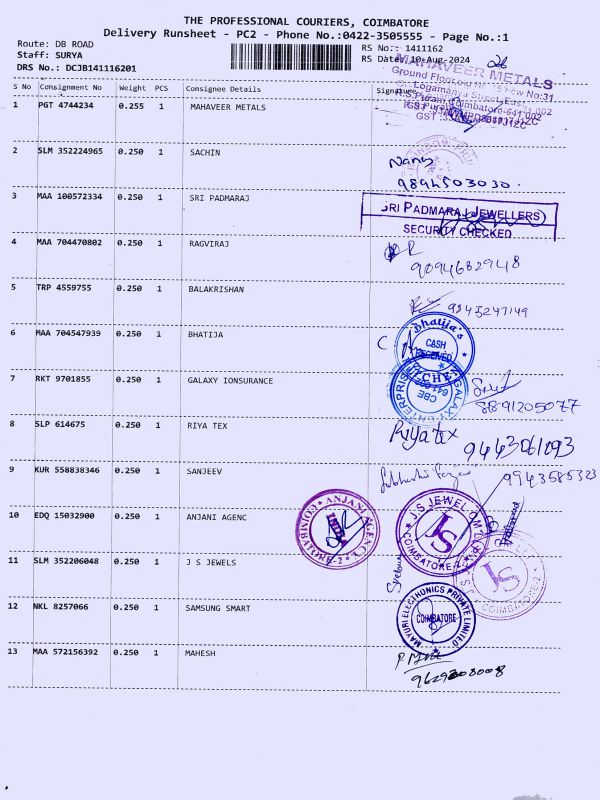 THE PROFESSIONAL COURIERS, COIMBATORE
Delivery Runsheet - PC2 - Phone No.:0422-3505555 - Page No.:1
Route: DB ROAD
Staff: SURYA
DRS No.: DCJB141116201
RS No.: 1411162
RS Date: 10-Aug-2024
S No Consignment No Weight PCS Consignee Details Signature
MAHAVEER METALS
1 PGT 4744234 0.255 1 MAHAVEER METALS
2 SLM 352224965 0.250 1 SACHIN
9894503030
3 MAA 100572334 0.250 1 SRI PADMARAJ
SRI PADMARAJ JEWELLERS
SECURITY CHECKED
4 MAA 704470802 0.250 1 RAGVIRAJ
9094682948
5 TRP 4559755 0.250 1 BALAKRISHAN
6 MAA 704547939 0.250 1 BHATIJA
Bhatija's
CASH
RECEIVED
7 RKT 9701855 0.250 1 GALAXY IONSURANCE
GALAXY ENTERPRISE
CBE
8891205077
8 SLP 614675 0.250 1 RIYA TEX
Riya tex
9443061093
9 KUR 558838346 0.250 1 SANJEEV
9943585323
10 EDQ 15032900 0.250 1 ANJANI AGENC
ANJANI AGENCY
COIMBATORE-2
11 SLM 352206048 0.250 1 J S JEWELS
J.S JEWEL
JS
COIMBATORE-2
12 NKL 8257066 0.250 1 SAMSUNG SMART
MAYURI ELECTRONICS PRIVATE LIMITED
COIMBATORE
13 MAA 572156392 0.250 1 MAHESH